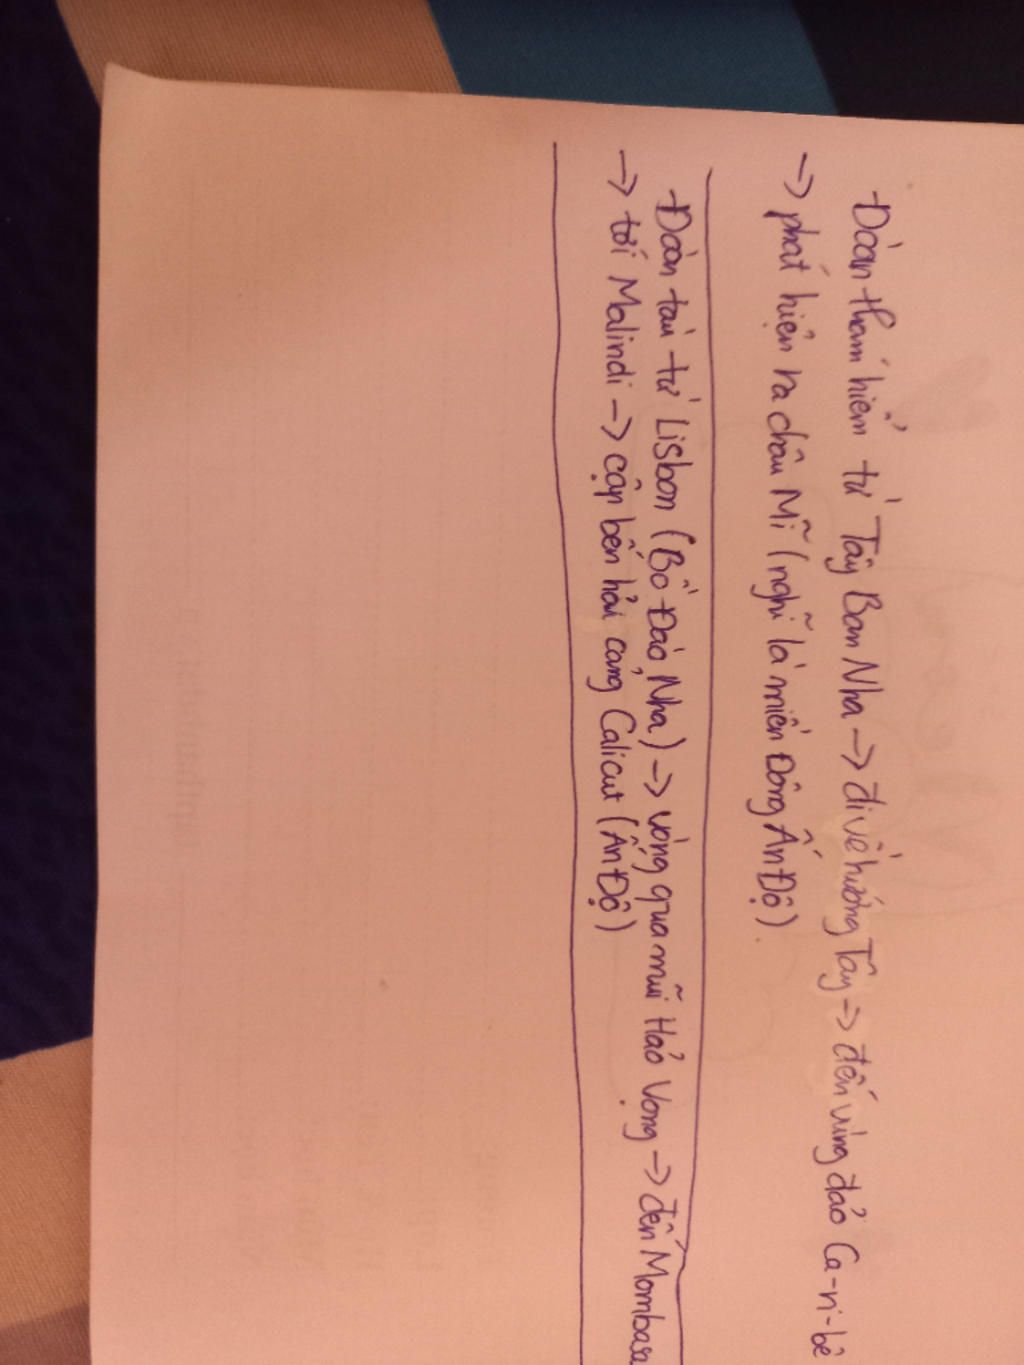 Đoàn thám hiểm từ Tây Ban Nha -> đi về hướng Tây -> đến vùng đảo Ca-ri-bê
-> phát hiện ra châu Mĩ (nghĩ là miền Đông Ấn Độ).
Đoàn tàu từ Lisbon (Bồ Đào Nha) -> vòng qua mũi Hảo Vọng -> đến Mombasa
-> tới Malindi -> cập bến hải cảng Calicut (Ấn Độ)